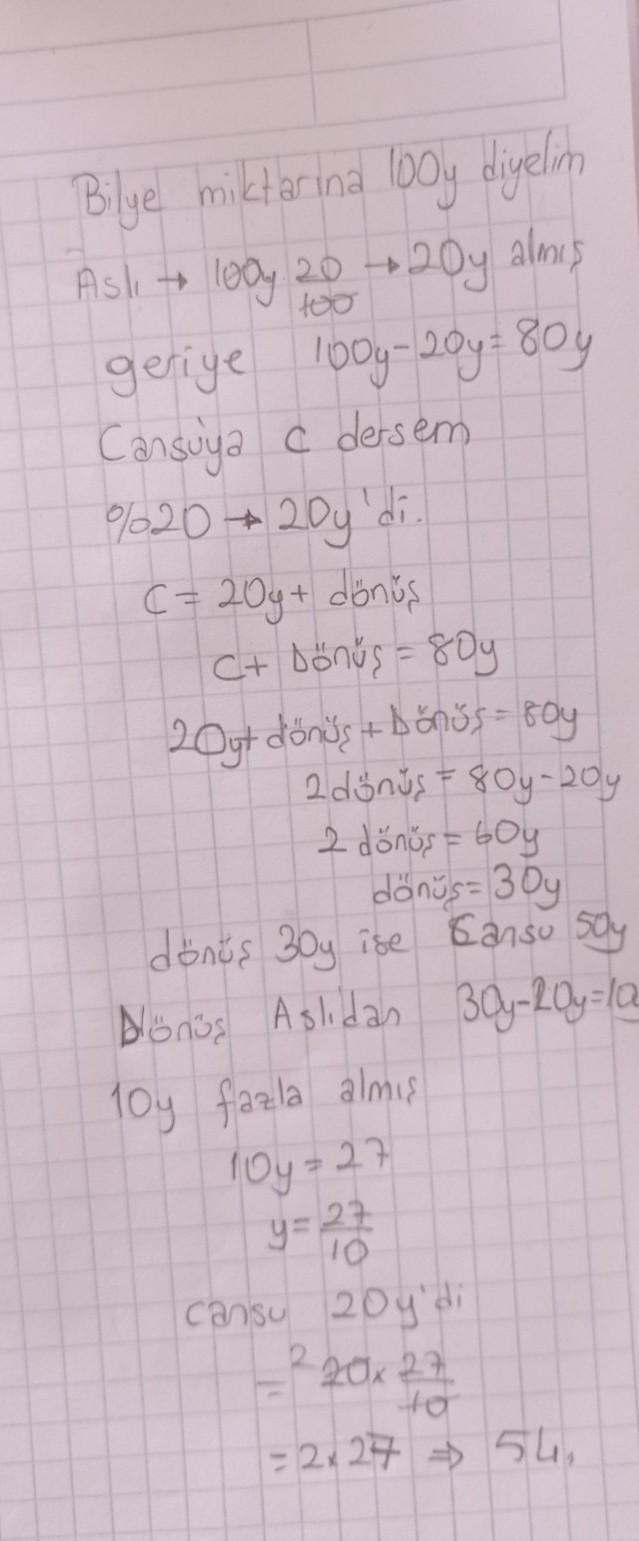 Bilye miktarına 100y diyelim
Aslı → 100y 20/100 → 20y almış
geriye 100y-20y=80y
Cansuya C dersem
%20 → 20y'di.
C= 20y+ dönüş
C+ Dönüş = 80y
20y+dönüş+Dönüş=80y
2dönüş=80y-20y
2 dönüş=60y
dönüş=30y
dönüş 30y ise Cansu 50y
Dönüş Aslıdan 30y-20y=10
10y fazla almış
10y=27
y=27/10
cansu 20y'di
=² 20x 27/10
=2x27 ⇒ 54,